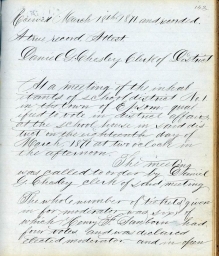 Received March 18th 1871 and recorded.
A true record Attest
Daniel G Chesley Clerk of District
At a meeting of the inhabi
tants of School district No 1
in the town of Epsom qual
ified to vote in district affairs
at the school house in said dis
trict on the eighteenth day of
March 1871 at two o'clock in
the afternoon.
The meeting
was called to order by Daniel
G Chesley clerk of said meeting
The whole number of tickets given
in for moderator was six of
which Henry F Sanborn had
four votes and was declared
elected moderator and in open